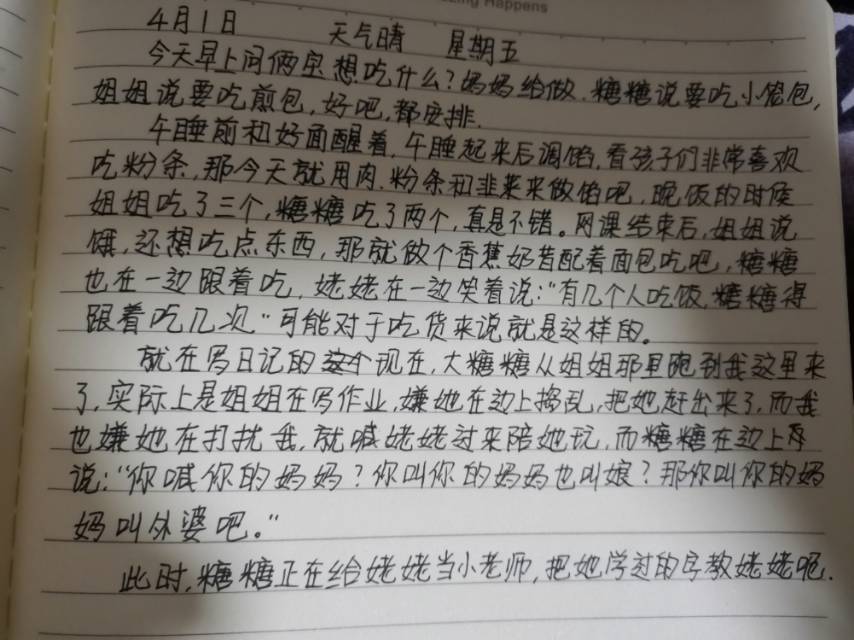 zing Happens
4月1日 天气晴 星期五
今天早上问俩宝想吃什么?妈妈给做.糖糖说要吃小笼包,
姐姐说要吃煎包,好吧,都安排.
午睡前和好面醒着,午睡起来后调馅,看孩子们非常喜欢
吃粉条,那今天就用肉.粉条和韭菜来做馅吧,晚饭的时候
姐姐吃了三个,糖糖吃了两个,真是不错。网课结束后,姐姐说
饿,还想吃点东西,那就做个香蕉奶昔配着面包吃吧,糖糖
也在一边跟着吃,姥姥在一边笑着说:"有几个人吃饭,糖糖得
跟着吃几次"可能对于吃货来说就是这样的。
就在写日记的这个现在,大糖糖从姐姐那里跑到我这里来
了,实际上是姐姐在写作业,嫌她在边上捣乱,把她赶出来了,而我
也嫌她在打扰我,就喊姥姥过来陪她玩,而糖糖在边上
说:"你喊你的妈妈?你叫你的妈妈也叫娘?那你叫你的妈
妈叫外婆吧。"
此时,糖糖正在给姥姥当小老师,把她学过的字教姥姥呢.